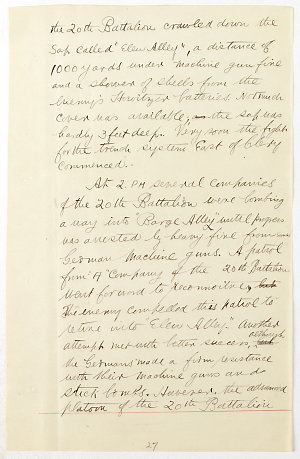 the 20th Battalion crawled down the
Sap called "Elsu Alley", a distance of
1000 yards under machine gun fire
and a shower of shells from the
enemy's Howitzer batteries. Not much
cover was available, the Sap was
hardly 3 feet deep. Very soon the fight
for the trench system East of Clery
commenced.
At 2. PM several companies
of the 20th Battalion were bombing
a way into "Barge Alley" until progress
was arrested by heavy fire from
German Machine guns. A patrol
from "A" Company of the 20th Battalion
went forward to reconnoitre,
The enemy compelled this patrol to
retire into Elsu Alley." Another
attempt met with better success, although
the Germans made a firm resistance
with their machine guns and
stick bombs. However, the advanced
platoon of the 20th Battalion
27